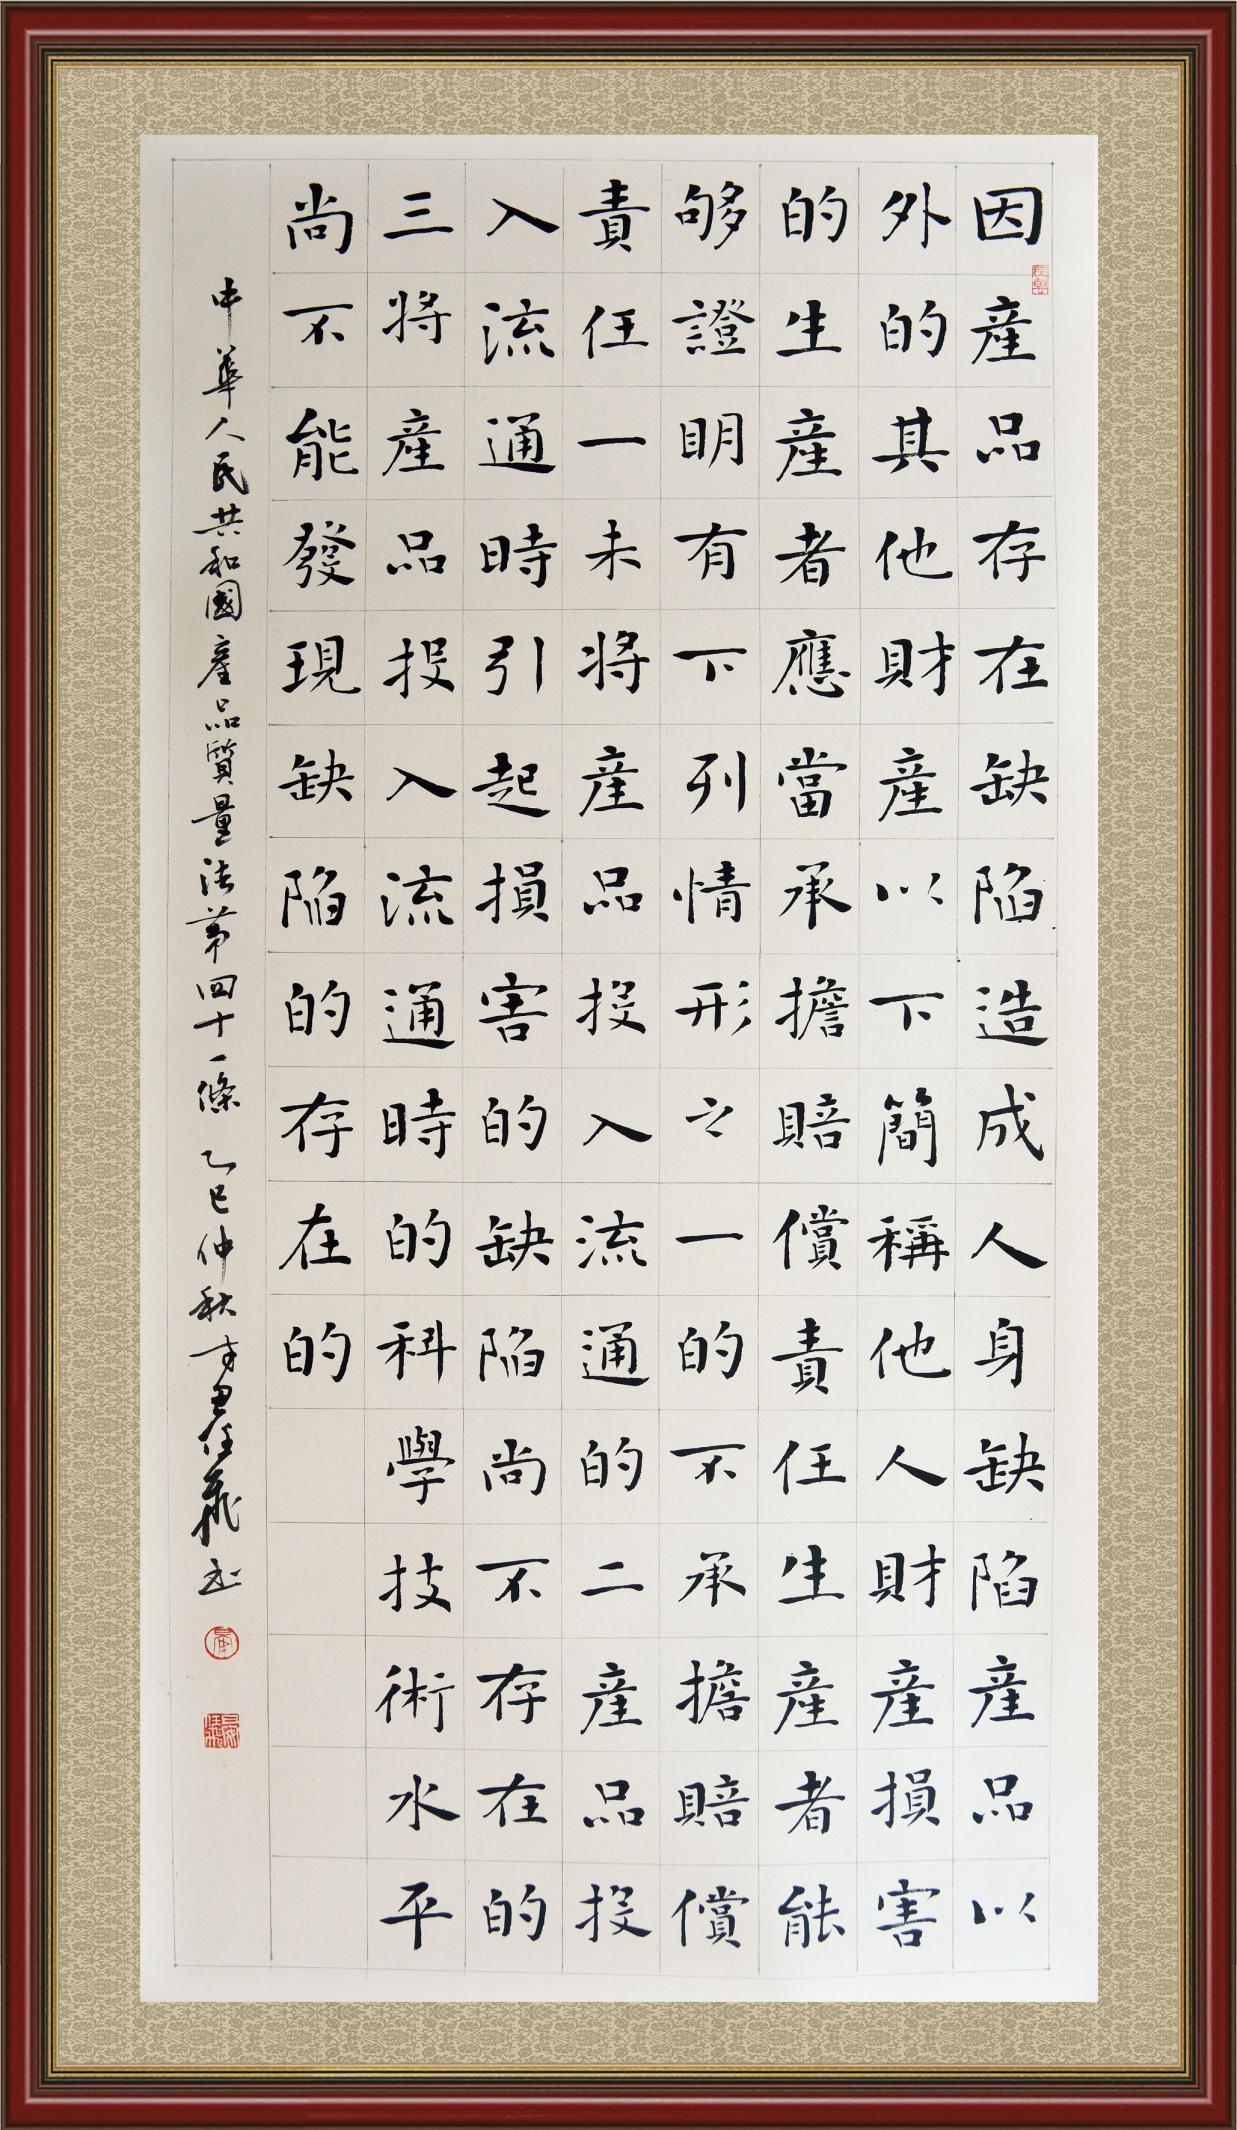 因産品存在缺陷造成人身缺陷産品以
外的其他財産以下簡稱他人財産損害
的生産者應當承擔賠償責任生産者能
够證明有下列情形之一的不承擔賠償
責任一未將産品投入流通的二産品投
入流通時引起損害的缺陷尚不存在的
三將産品投入流通時的科學技術水平
尚不能發現缺陷的存在的
中華人民共和國産品質量法第四十一條 乙巳仲秋